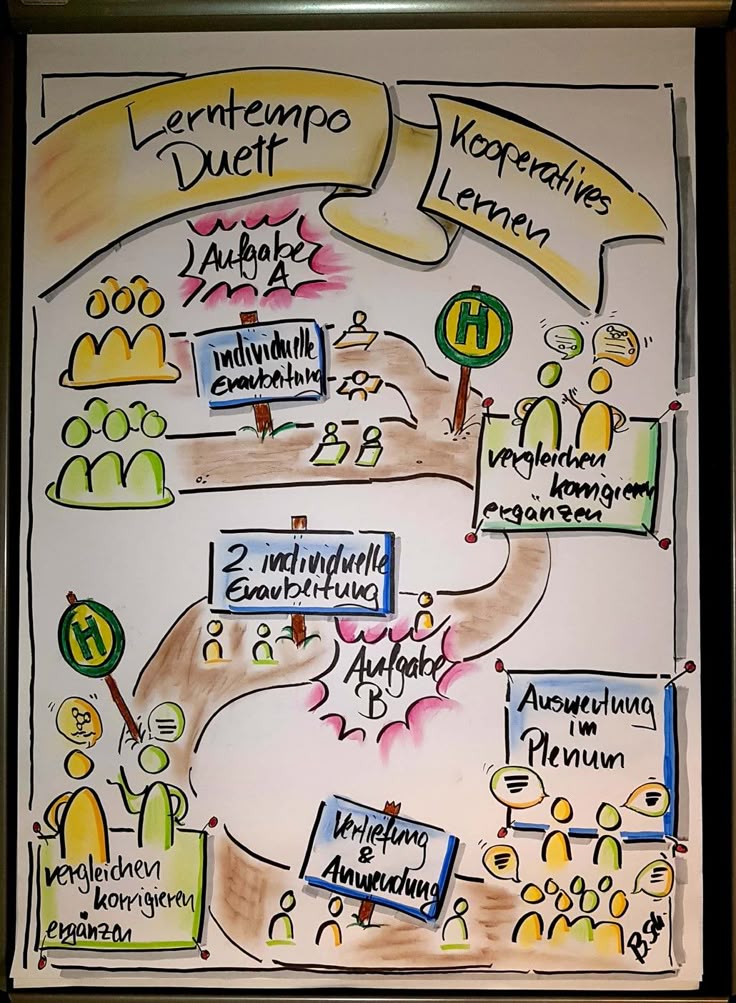 Lerntempo
Duett
Kooperatives
Lernen
Aufgabe
A
individuelle
Erarbeitung
H
vergleichen
korrigieren
ergänzen
2. individuelle
Erarbeitung
H
Aufgabe
B
Auswertung
im
Plenum
Vertiefung
&
Anwendung
vergleichen
korrigieren
ergänzen